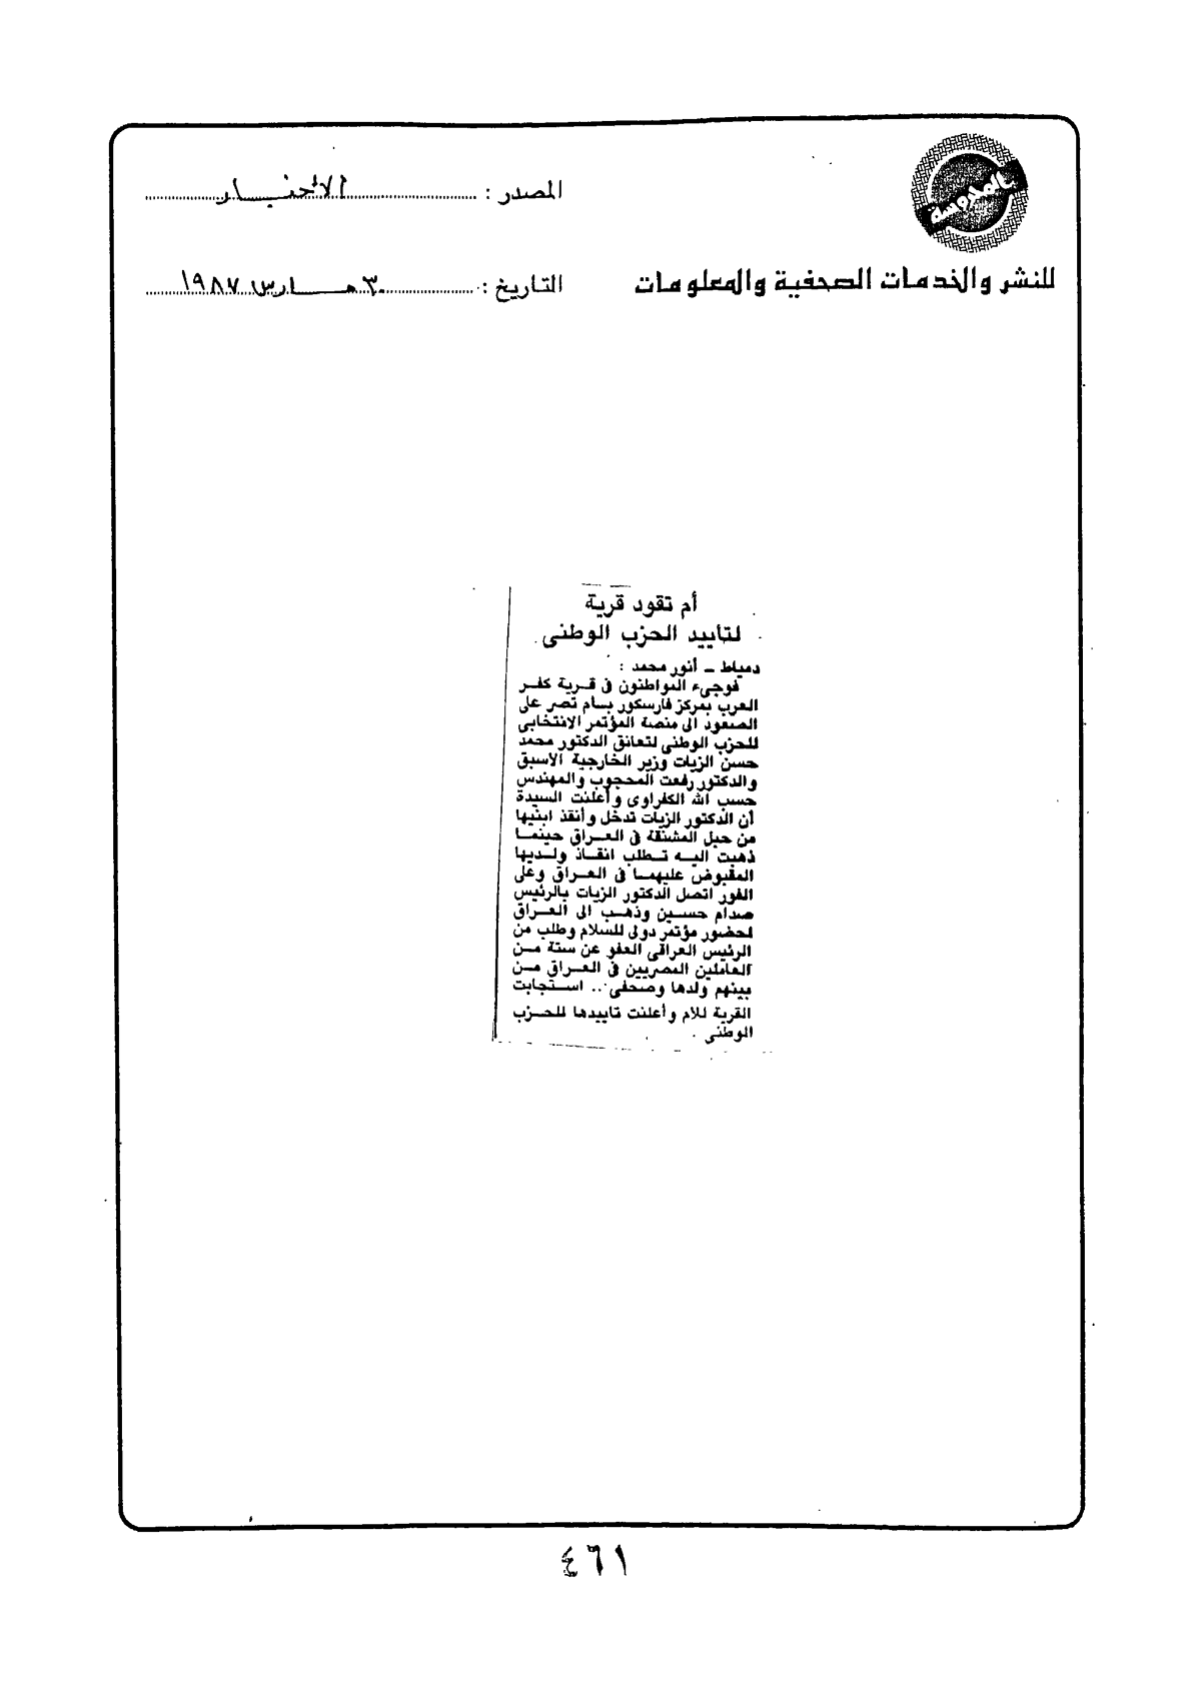 المحروسة
للنشر والخدمات الصحفية والمعلومات
المصدر : الأخبار
التاريخ : ٣٠ مارس ١٩٨٧
أم تقود قرية
لتأييد الحزب الوطنى
دمياط ــ أنور محمد :
فوجىء المواطنون فى قرية كفر
العرب بمركز فارسكور بسام تصر على
الصعود الى منصة المؤتمر الانتخابى
للحزب الوطنى لتعانق الدكتور محمد
حسن الزيات وزير الخارجية الاسبق
والدكتور رفعت المحجوب والمهندس
حسب الله الكفراوى وأعلنت السيدة
أن الدكتور الزيات تدخل وأنقذ ابنيها
من حبل المشنقة فى العراق حينما
ذهبت اليه تطلب انقاذ ولديها
المقبوض عليهما فى العراق وعلى
الفور اتصل الدكتور الزيات بالرئيس
صدام حسين وذهب الى العراق
لحضور مؤتمر دولى للسلام وطلب من
الرئيس العراقى العفو عن ستة من
العاملين المصريين فى العراق من
بينهم ولدها وصحفى .. استجابت
القرية للام وأعلنت تاييدها للحزب
الوطنى .
٤٦١